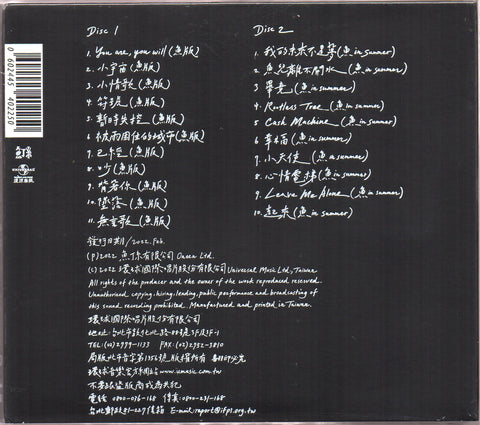 Disc 1
1. You are, you will (魚版)
2. 小宇宙 (魚版)
3. 小情歌 (魚版)
4. 符號 (魚版)
5. 暫時失控 (魚版)
6. 被雨困住的城市 (魚版)
7. 已經 (魚版)
8. 吵 (魚版)
9. 背著你 (魚版)
10. 墜落 (魚版)
11. 無言歌 (魚版)
Disc 2
1. 我的未來不是夢 (魚 in summer)
2. 魚兒離不開水 (魚 in summer)
3. 畢竟 (魚 in summer)
4. Rootless Tree (魚 in summer)
5. Cash Machine (魚 in summer)
6. 幸福 (魚 in summer)
7. 小天使 (魚 in summer)
8. 心情電梯 (魚 in summer)
9. Leave Me Alone (魚 in summer)
10. 起來 (魚 in summer)
發行日期 / 2022. Feb.
(P) 2022 魚 有限公司 Ltd.
(C) 2022 環球國際唱片股份有限公司 Universal Music Ltd., Taiwan
All rights of the producer and the owner of the work reproduced reserved.
Unauthorized copying, hiring, lending, public performance and broadcasting of
this sound recording prohibited. Manufactured and printed in Taiwan.
環球國際唱片股份有限公司
地址: 台北市敦化北路88號3F及5F-1
TEL: (02)2999-1133 FAX: (02)2932-3810
局版北市音字第1356號 版權所有 翻印必究
環球音樂官方網站 www.iemusic.com.tw
不要讓盜版商成為共犯
電話 0800-036-168 傳真: 0800-231-168
台北郵政81-227信箱 E-mail: report@ifpi.org.tw
0 602445 402250
環球唱片